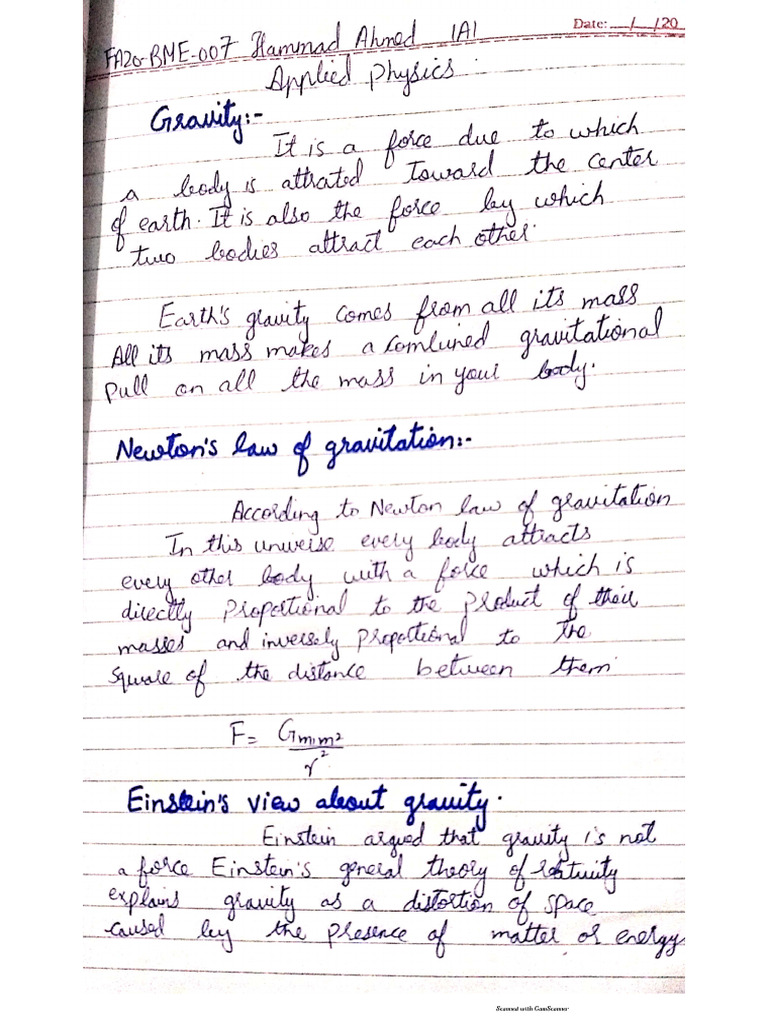 Date: / /20
FA20-BME-007 Hammad Ahmed 1A1
Applied Physics
Gravity:-
It is a force due to which
a body is attrated Toward the center
of earth. It is also the force by which
two bodies attract each other.
Earth's gravity comes from all its mass
All its mass makes a combined gravitational
Pull on all the mass in your body.
Newton's law of gravitation:-
According to Newton law of gravitation
In this unverse every body attracts
every other body with a force which is
directly Propotional to the Product of their
masses and inversely Propotional to the
Square of the distance between them
F = Gm1m2
r²
Einstein's view about gravity.
Einstein argued that gravity is not
a force Einstein's general theory of relativity
explains gravity as a distortion of space
caused by the presence of matter or energy
Scanned with CamScanner